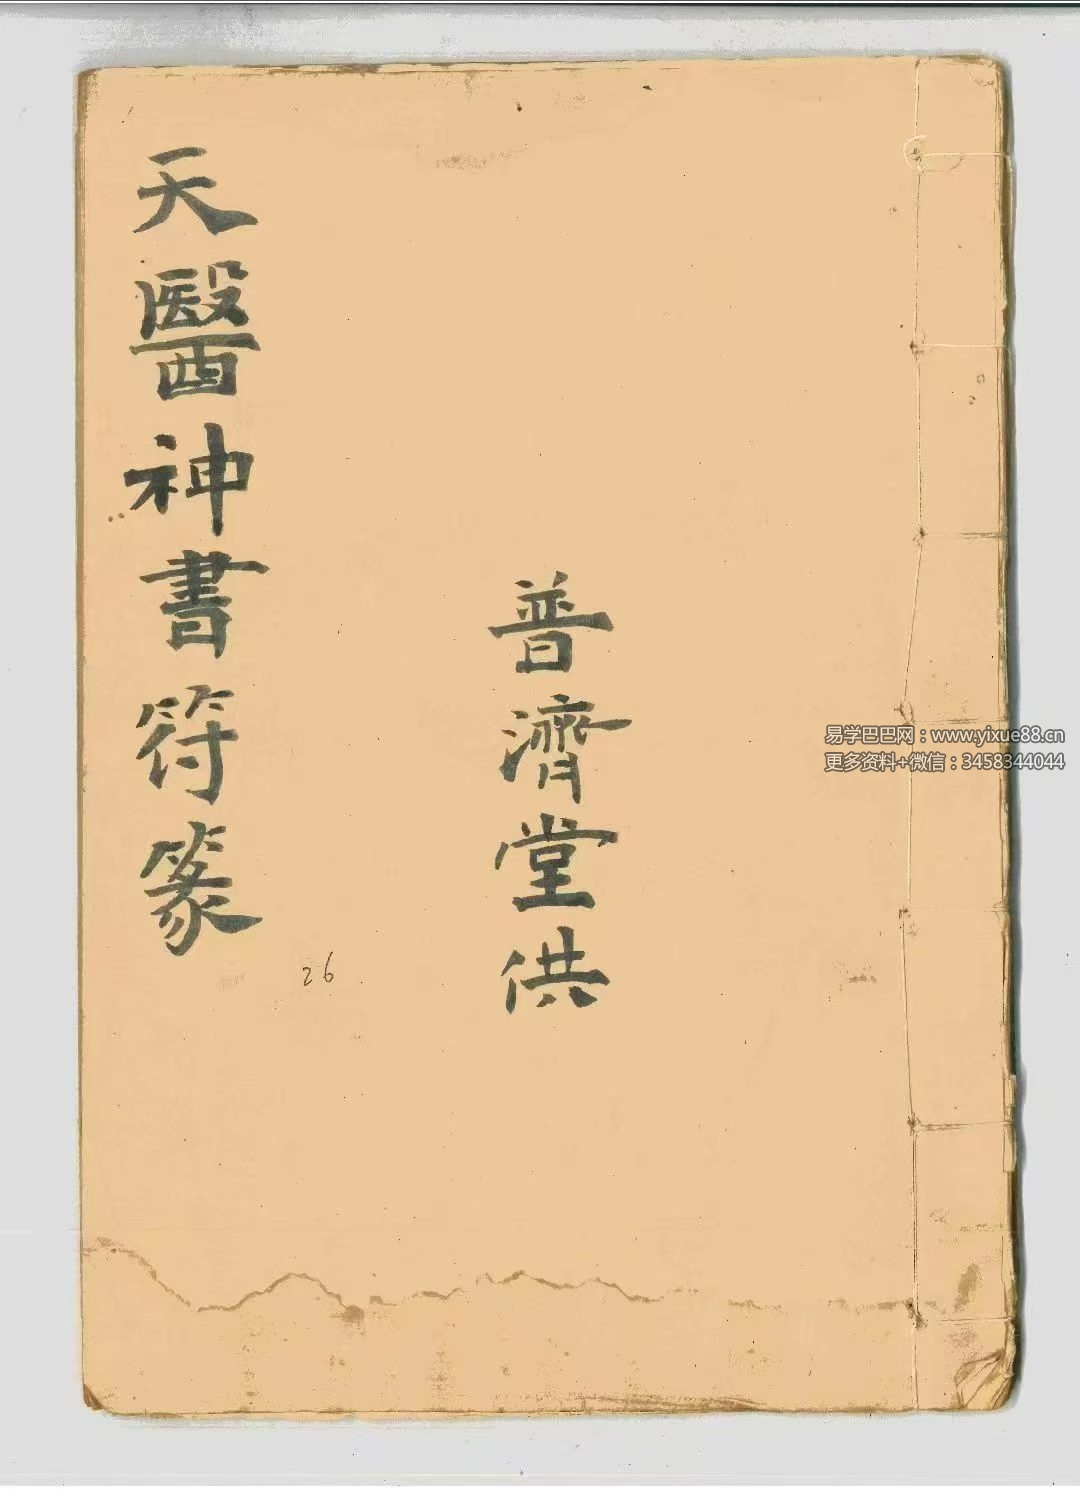 天醫神書符篆
普濟堂供
26
易学巴巴网：www.yixue88.cn
更多资料+微信：3458344044